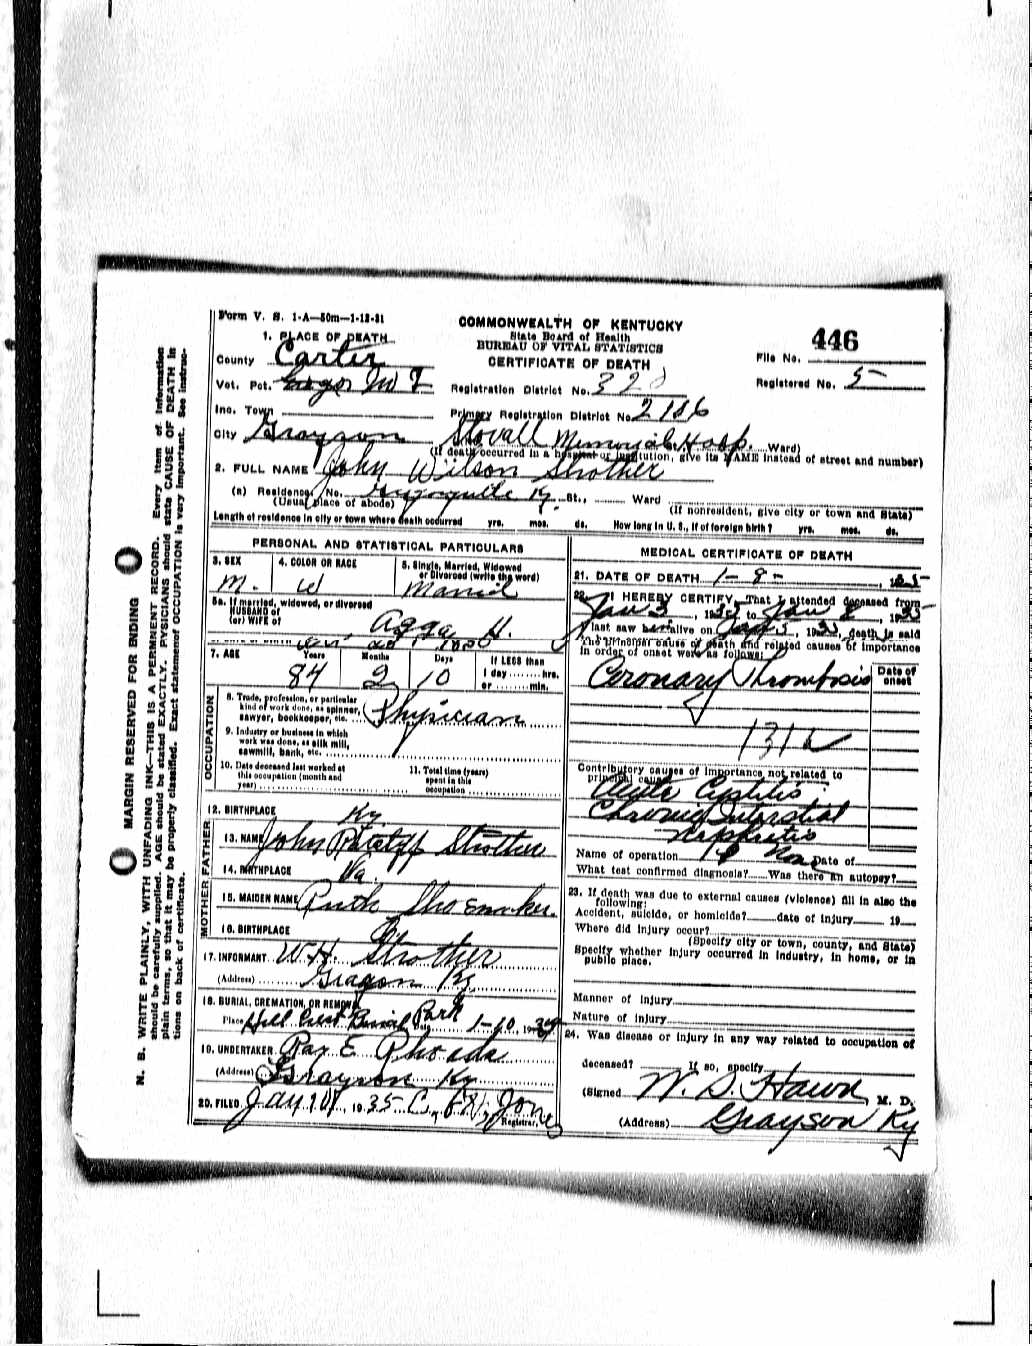 Form V. S. 1-A—50m—1-13-31
COMMONWEALTH OF KENTUCKY
State Board of Health
BUREAU OF VITAL STATISTICS
CERTIFICATE OF DEATH
446
File No.
Registered No. 5
1. PLACE OF DEATH
County Carter
Vot. Pct.
Registration District No.
Inc. Town
Primary Registration District No. 2186
City Grayson Stovall Memorial Hosp. Ward)
(If death occurred in a hospital or institution, give its NAME instead of street and number)
2. FULL NAME John Wilson Strother
(a) Residence, No. St., Ward
(Usual place of abode) (If nonresident, give city or town and State)
Length of residence in city or town where death occurred yrs. mos. ds. How long in U. S., if of foreign birth? yrs. mos. ds.
PERSONAL AND STATISTICAL PARTICULARS
3. SEX
M.
4. COLOR OR RACE
W
5. Single, Married, Widowed
or Divorced (write the word)
Married
5a. If married, widowed, or divorced
HUSBAND of
(or) WIFE of Agga H.
7. AGE
Years
84
Months
2
Days
10
If LESS than
1 day hrs.
or min.
OCCUPATION
8. Trade, profession, or particular
kind of work done, as spinner,
sawyer, bookkeeper, etc. Physician
9. Industry or business in which
work was done, as silk mill,
sawmill, bank, etc.
10. Date deceased last worked at
this occupation (month and
year)
11. Total time (years)
spent in this
occupation
12. BIRTHPLACE Ky
FATHER
13. NAME John Strother
14. BIRTHPLACE Va.
MOTHER
15. MAIDEN NAME Ruth Shoemaker.
16. BIRTHPLACE
17. INFORMANT W H. Strother
(Address) Grayson Ky
18. BURIAL, CREMATION, OR REMOVAL
Place Hill Crest Burial Park Date 1-10, 19
19. UNDERTAKER Ray E Rhoads
(Address) Grayson Ky
20. FILED Jan 1935 Jones
Registrar.
MEDICAL CERTIFICATE OF DEATH
21. DATE OF DEATH 1-8-
22. I HEREBY CERTIFY, That I attended deceased from
Jan 3, 19 to Jan 8, 1935
I last saw alive on , 19 , death is said
The principal cause of death and related causes of importance
in order of onset were as follows:
Date of
onset
Coronary Thrombosis
Contributory causes of importance not related to
principal cause:
Acute Cystitis
Chronic Interstial
Nephritis
Name of operation Date of
What test confirmed diagnosis? Was there an autopsy?
23. If death was due to external causes (violence) fill in also the
following:
Accident, suicide, or homicide? date of injury 19
Where did injury occur?
(Specify city or town, county, and State)
Specify whether injury occurred in industry, in home, or in
public place.
Manner of injury
Nature of injury
24. Was disease or injury in any way related to occupation of
deceased? If so, specify
(Signed W. S. Hawn, M. D.
(Address) Grayson Ky
MARGIN RESERVED FOR BINDING
N. B. WRITE PLAINLY, WITH UNFADING INK—THIS IS A PERMNENT RECORD. Every item of information
should be carefully supplied. AGE should be stated EXACTLY. PYSICIANS should state CAUSE OF DEATH in
plain terms, so that it may be properly classified. Exact statement of OCCUPATION is very important. See instruc-
tions on back of certificate.